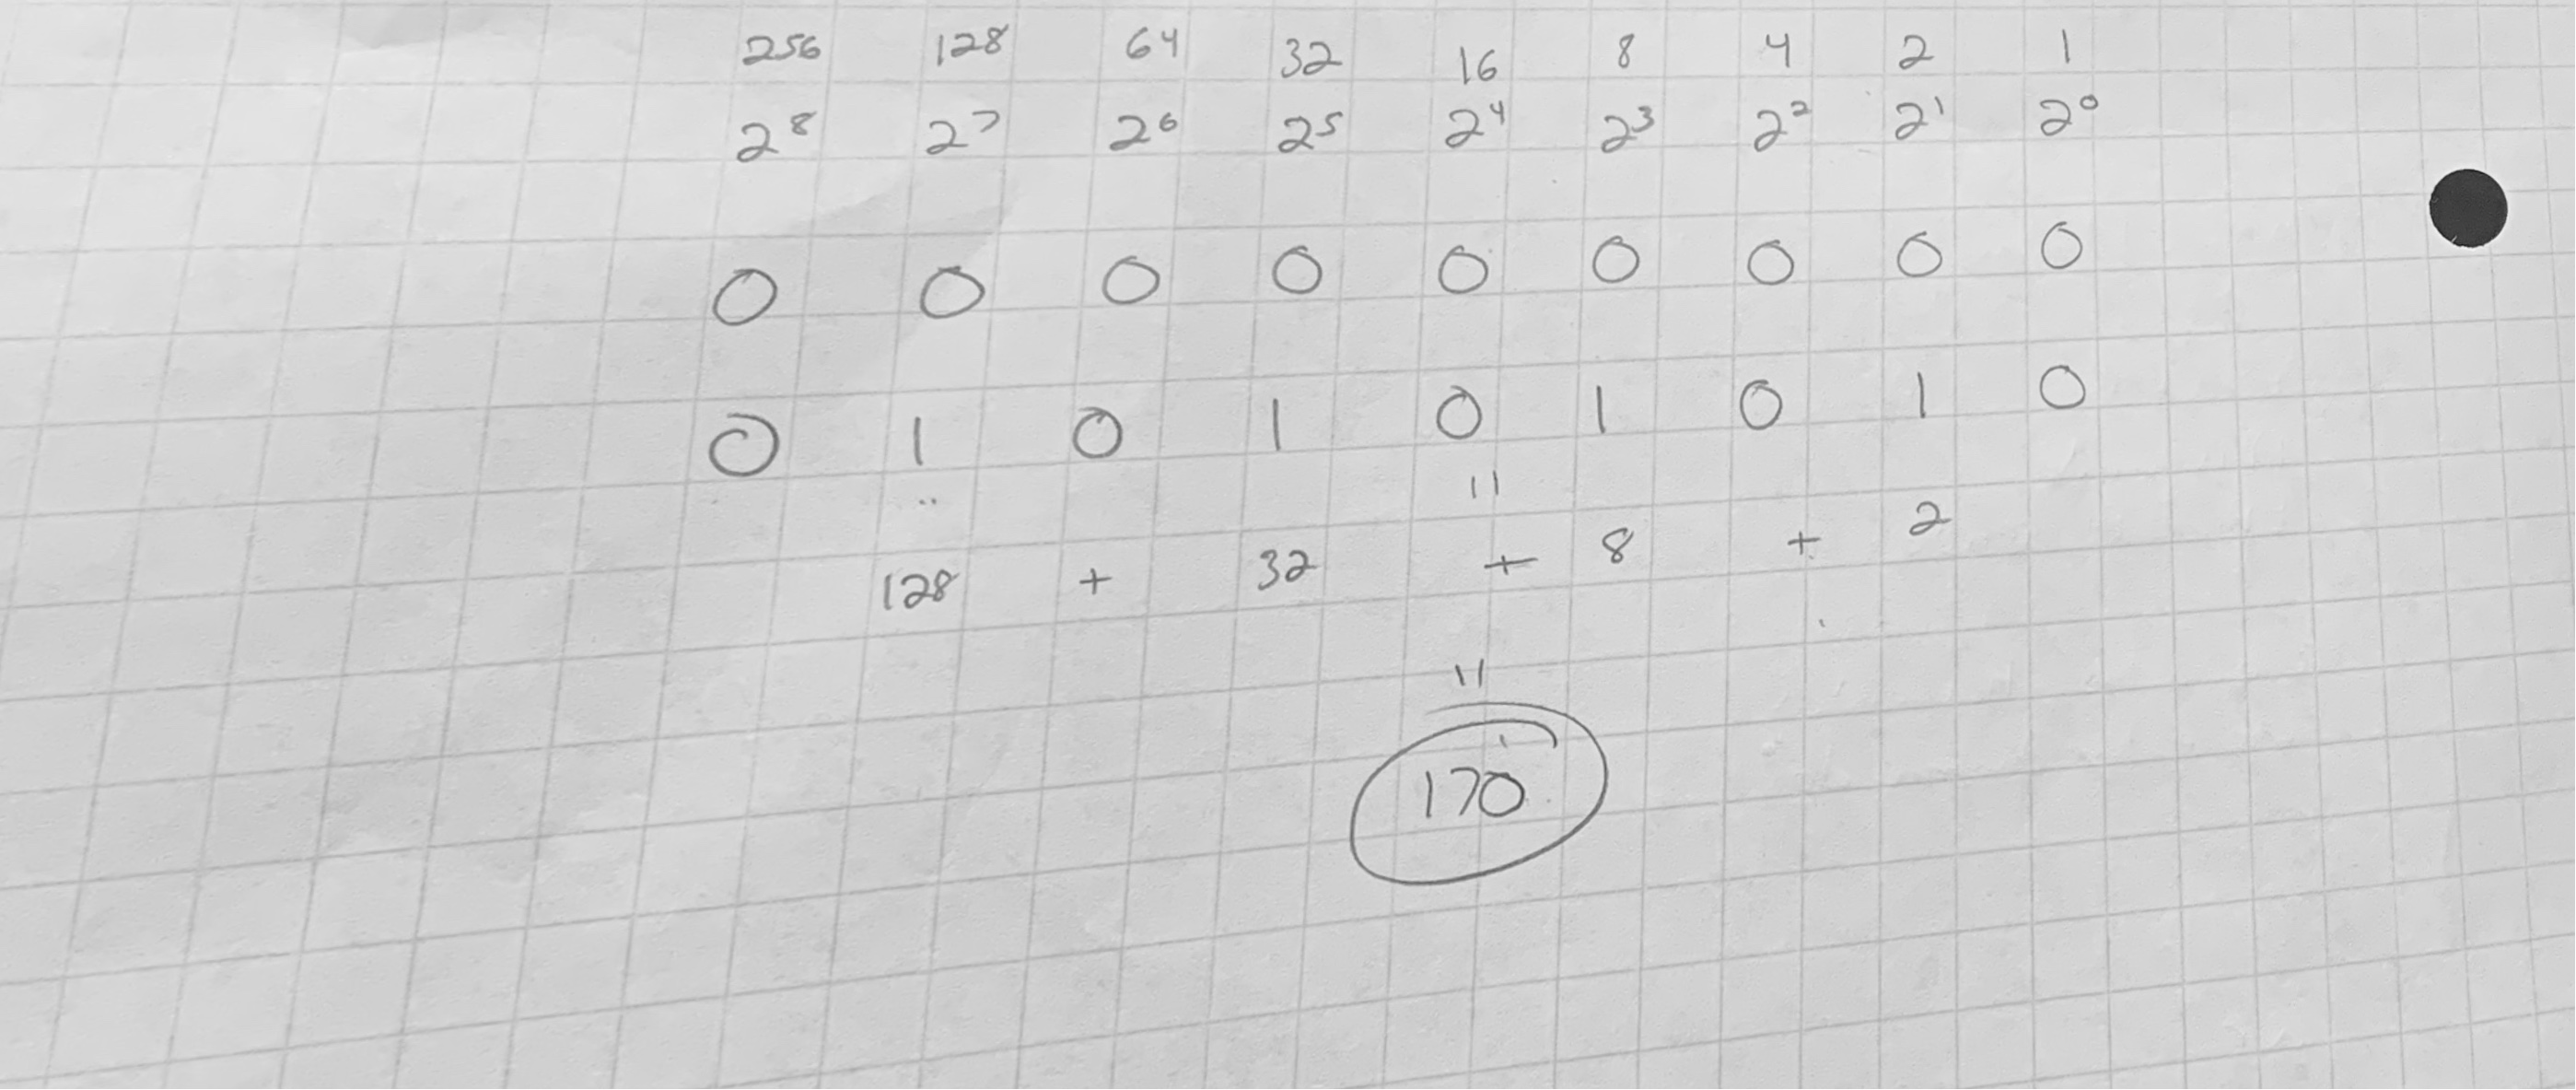 256 128 64 32 16 8 4 2 1
2⁸ 2⁷ 2⁶ 2⁵ 2⁴ 2³ 2² 2¹ 2⁰
0 0 0 0 0 0 0 0 0
0 1 0 1 0 1 0 1 0
||
128 + 32 + 8 + 2
||
170